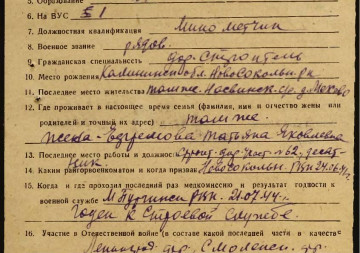 5. Образование
6. На ВУС № 1
7. Должностная квалификация Минометчик
8. Военное звание рядов.
9. Гражданская специальность дор. строитель
10. Место рождения Калининск. обл. Новосокольн. р-н
11. Последнее место жительства там же, Насвинск. с/с д. Мехово
12. Где проживает в настоящее время семья (фамилия, имя и отчество жены или
родителей и точный их адрес) там же
жена - Ефремова Татьяна Яковлевна
13. Последнее место работы и должность дор. част. № 62, десят-
ник
14. Каким райгорвоенкоматом и когда призван Новосокольн. РВК 24.6.41 г.
15. Когда и где проходил последний раз медкомиссию и результат годности к
военной службе М. Пустинск РВК. 21.07.44 г.
Годен к строевой службе.
16. Участие в Отечественной войне (в составе какой последней части и в качестве
Ленинград. фр., Смоленск. фр.